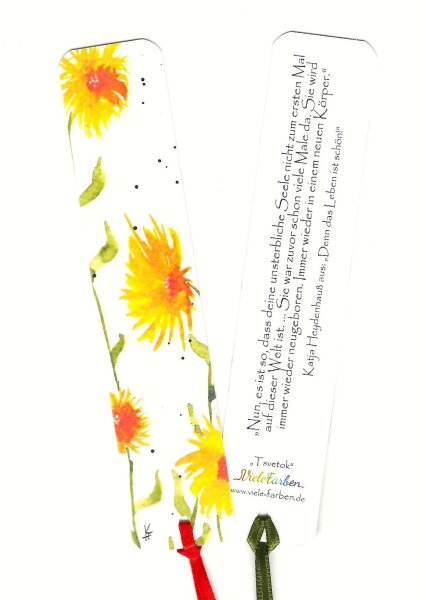 „Nun, es ist so, dass deine unsterbliche Seele nicht zum ersten Mal
auf dieser Welt ist. ... Sie war zuvor schon viele Male da. Sie wird
immer wieder neugeboren. Immer wieder in einem neuen Körper.“
Katja Heydenhauß aus: „Denn das Leben ist schön!“
„Tsvetok“
VieleFarben
www.viele-farben.de